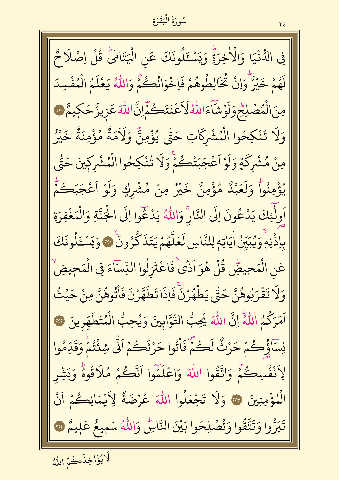 سُورَةُ الْبَقَرَةِ
فِي الدُّنْيَا وَالْاٰخِرَةِۜ وَيَسْـَٔلُونَكَ عَنِ الْيَتَامٰىۜ قُلْ اِصْلَاحٌ
لَهُمْ خَيْرٌۜ وَاِنْ تُخَالِطُوهُمْ فَاِخْوَانُكُمْۜ وَاللّٰهُ يَعْلَمُ الْمُفْسِدَ
مِنَ الْمُصْلِحِۜ وَلَوْ شَٓاءَ اللّٰهُ لَاَعْنَتَكُمْۜ اِنَّ اللّٰهَ عَزِيزٌ حَكِيمٌ
وَلَا تَنْكِحُوا الْمُشْرِكَاتِ حَتّٰى يُؤْمِنَّۜ وَلَاَمَةٌ مُؤْمِنَةٌ خَيْرٌ
مِنْ مُشْرِكَةٍ وَلَوْ اَعْجَبَتْكُمْۚ وَلَا تُنْكِحُوا الْمُشْرِكِينَ حَتّٰى
يُؤْمِنُواۜ وَلَعَبْدٌ مُؤْمِنٌ خَيْرٌ مِنْ مُشْرِكٍ وَلَوْ اَعْجَبَكُمْۜ
اُو۬لٰٓئِكَ يَدْعُونَ اِلَى النَّارِۚ وَاللّٰهُ يَدْعُٓوا اِلَى الْجَنَّةِ وَالْمَغْفِرَةِ
بِاِذْنِهٖۚ وَيُبَيِّنُ اٰيَاتِهٖ لِلنَّاسِ لَعَلَّهُمْ يَتَذَكَّرُونَ وَيَسْـَٔلُونَكَ
عَنِ الْمَحِيضِۜ قُلْ هُوَ اَذًىۙ فَاعْتَزِلُوا النِّسَٓاءَ فِي الْمَحِيضِۙ
وَلَا تَقْرَبُوهُنَّ حَتّٰى يَطْهُرْنَۚ فَاِذَا تَطَهَّرْنَ فَأْتُوهُنَّ مِنْ حَيْثُ
اَمَرَكُمُ اللّٰهُۜ اِنَّ اللّٰهَ يُحِبُّ التَّوَّابِينَ وَيُحِبُّ الْمُتَطَهِّرِينَ
نِسَٓاؤُ۬كُمْ حَرْثٌ لَكُمْۖ فَأْتُوا حَرْثَكُمْ اَنّٰى شِئْتُمْۘ وَقَدِّمُوا
لِاَنْفُسِكُمْۜ وَاتَّقُوا اللّٰهَ وَاعْلَمُٓوا اَنَّكُمْ مُلَاقُوهُۜ وَبَشِّرِ
الْمُؤْمِنِينَ وَلَا تَجْعَلُوا اللّٰهَ عُرْضَةً لِاَيْمَانِكُمْ اَنْ
تَبَرُّوا وَتَتَّقُوا وَتُصْلِحُوا بَيْنَ النَّاسِۜ وَاللّٰهُ سَمِيعٌ عَلِيمٌ